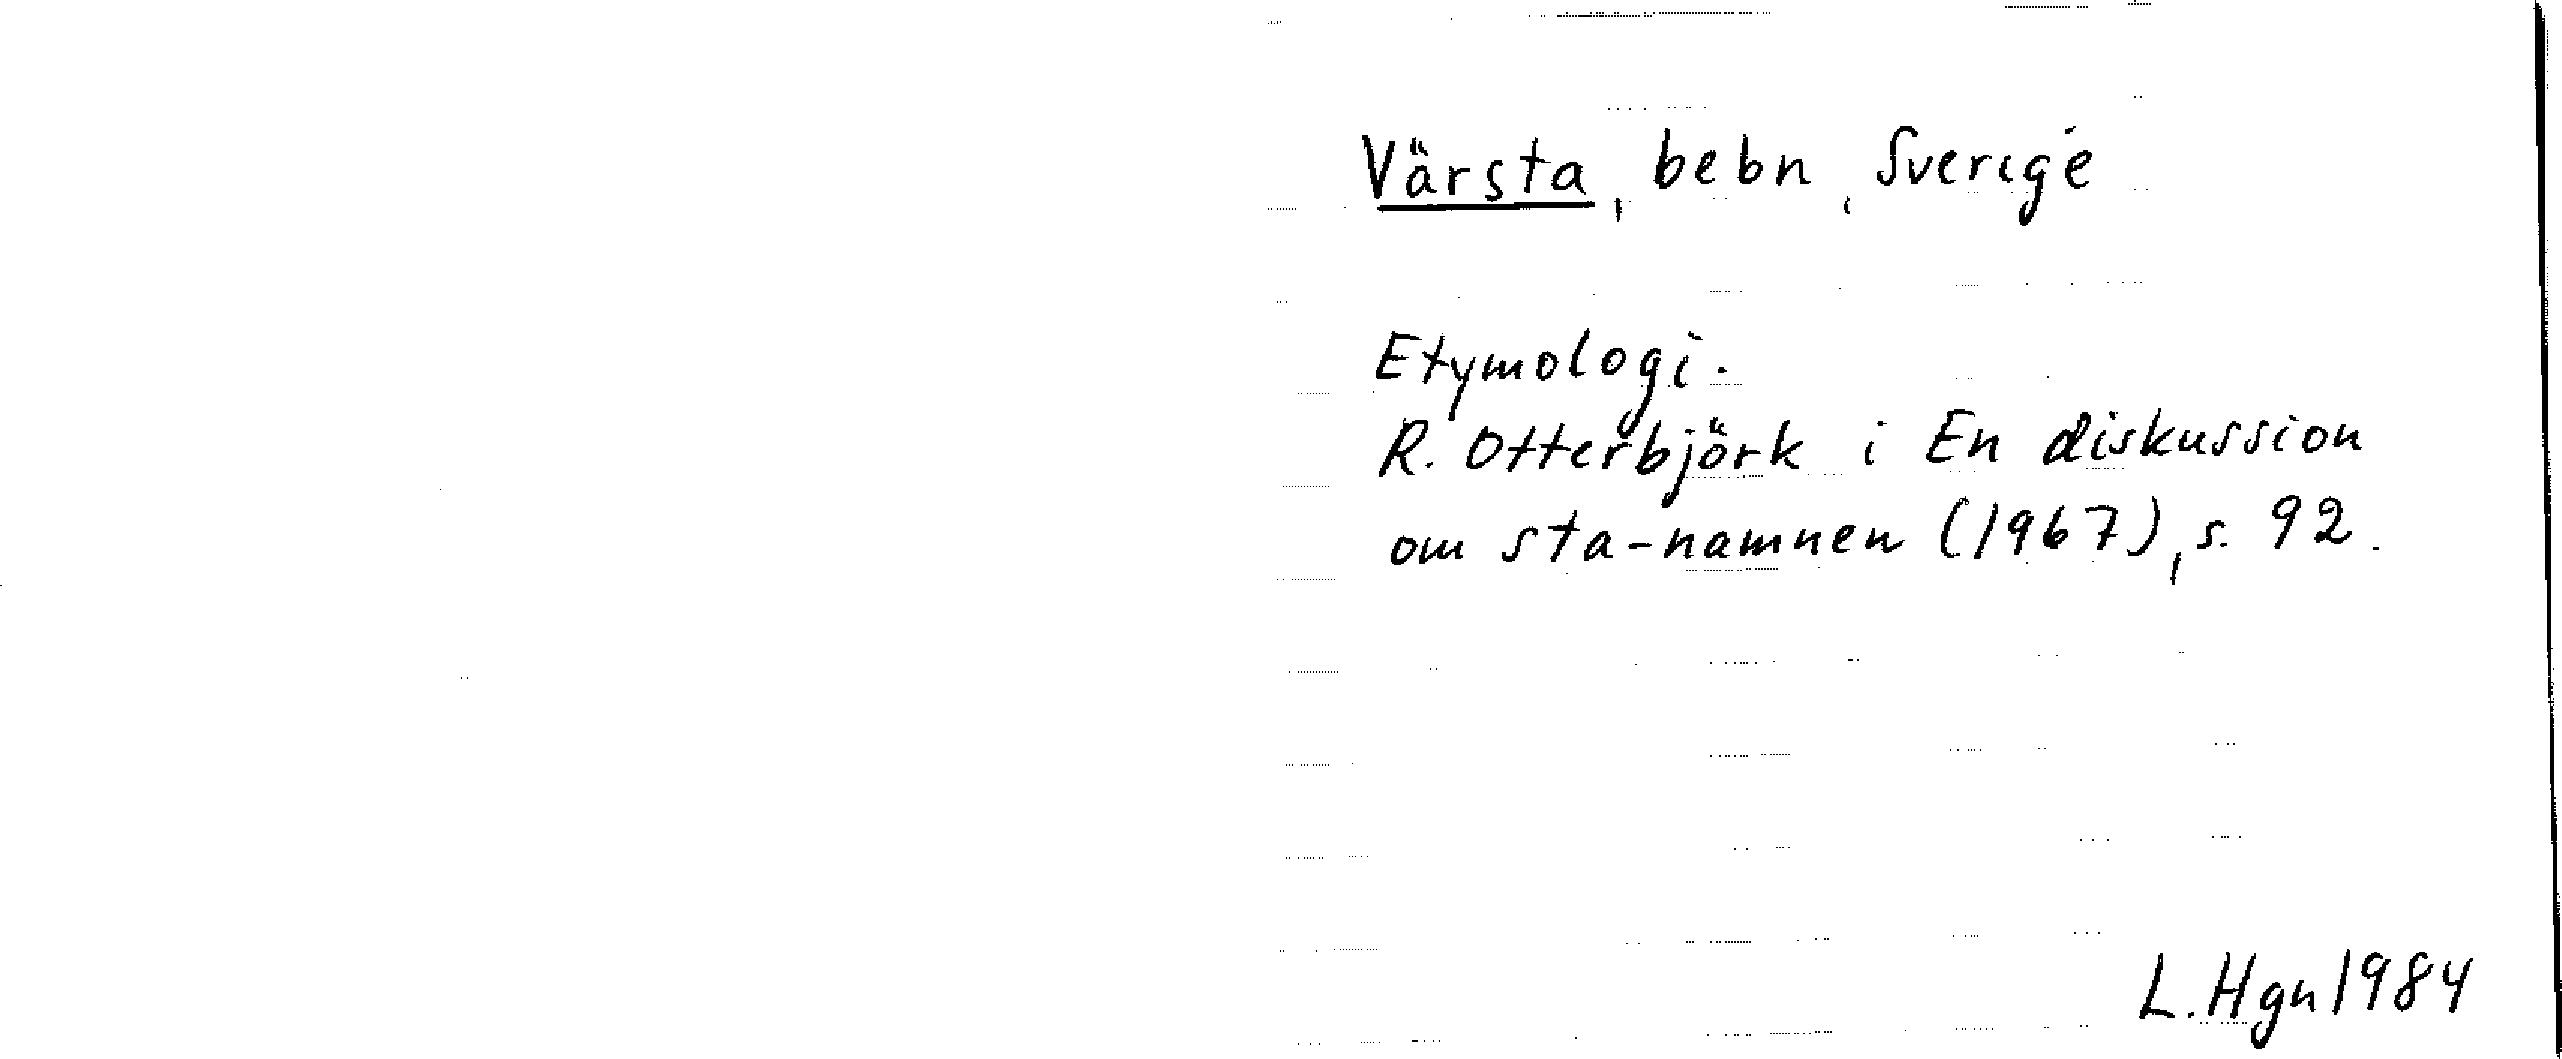 Värsta, bebn, Sverige
Etymologi.
R. Otterbjörk i En diskussion
om sta-namnen (1967), s. 92.
L. Hgn 1984